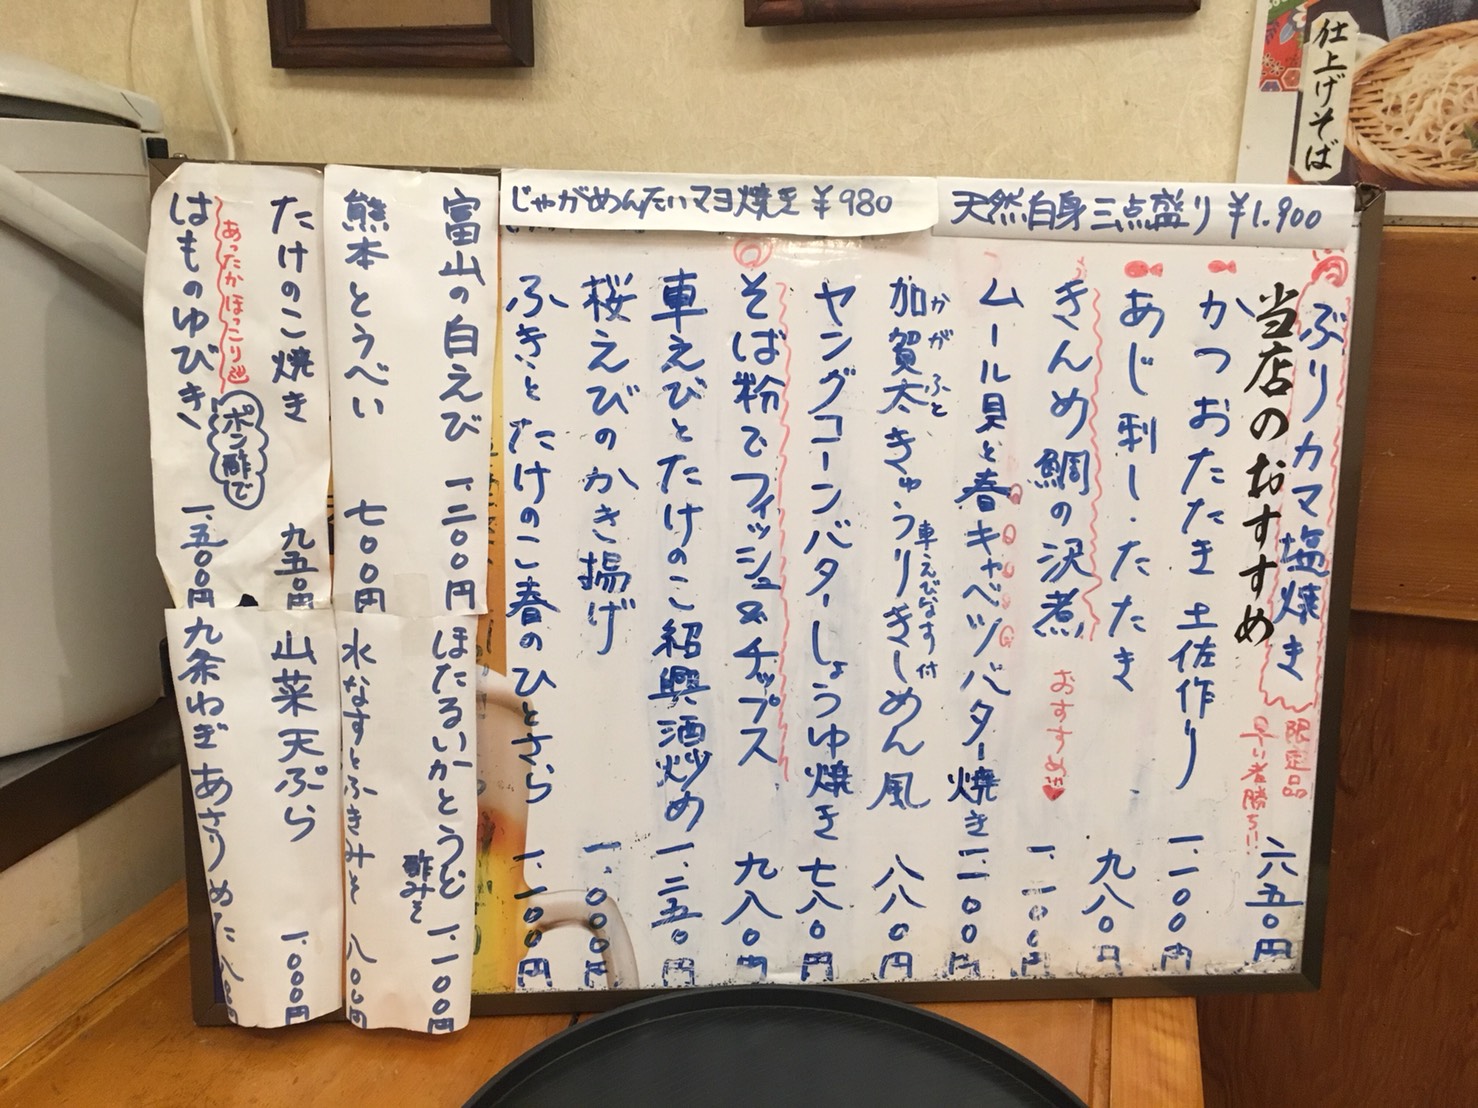 仕上げそば
天然白身三点盛り ¥1.900
じゃがめんたいマヨ焼き ¥980
ぶりカマ塩焼き 限定品 早い者勝ち!! 六五〇円
当店のおすすめ
かつおたたき 土佐作り 一.一〇〇円
あじ刺し.たたき 九八〇円
きんめ鯛の沢煮 おすすめ 一.一〇〇円
ムール貝と春キャベツバター焼き 一.一〇〇円
加賀太きゅうりきしめん風 八八〇円
かがふと
車えびなす付
ヤングコーンバターしょうゆ焼き 七八〇円
そば粉でフィッシュ&チップス 九八〇円
車えびとたけのこ紹興酒炒め 一.二五〇円
桜えびのかき揚げ 一.〇〇〇円
ふきとたけのこ春のひとさら 一.一〇〇円
富山の白えび 一.二〇〇円
熊本とうべい 七〇〇円
たけのこ焼き 九五〇円
あったかほっこり
はものゆびき ポン酢で 一.五〇〇円
ほたるいかとうど 酢みそ 一.一〇〇円
水なすとふきみそ 八〇〇円
山菜天ぷら 一.〇〇〇円
九条ねぎあさりぬた 八〇〇円